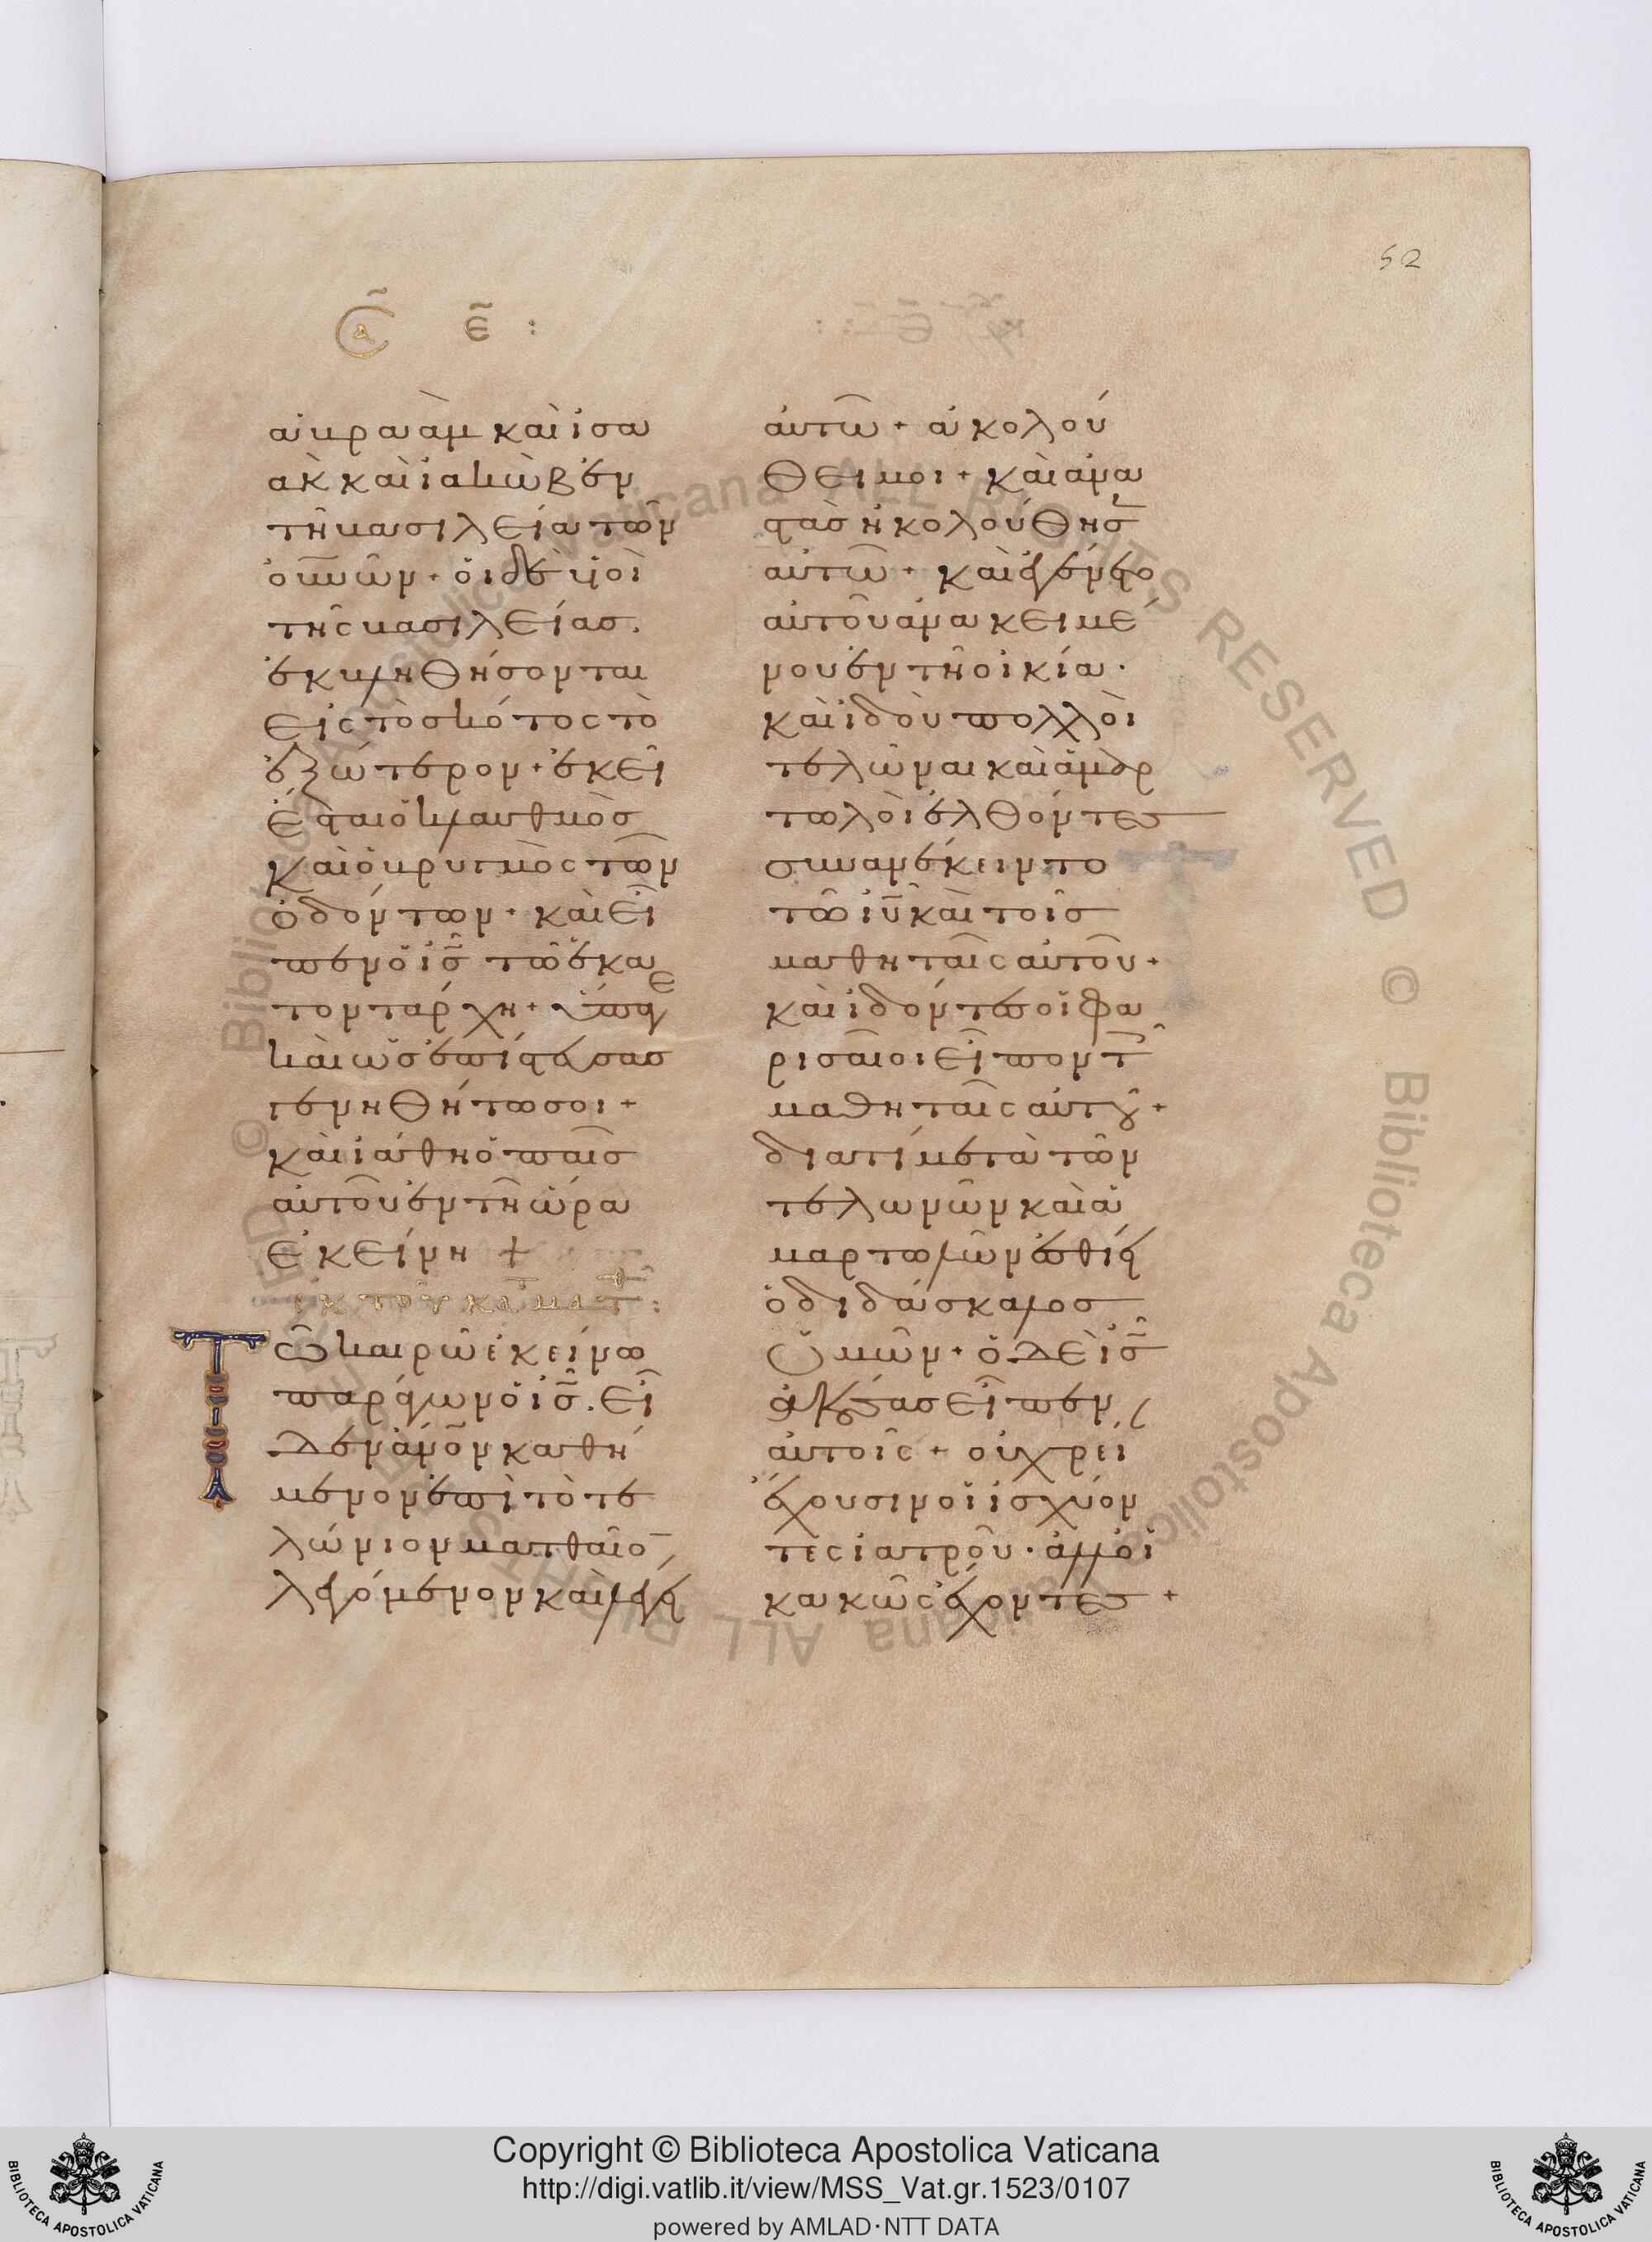 52
Cα̃ ε̃ :
ἀβραὰμ καὶ ἰσα
ὰκ καὶ ἰακὼβ ἐν
τῆ βασιλεία τῶν
οὐνῶν · οἱ δὲ υἱοὶ
τῆς βασιλείας.
ἐκβληθήσονται
εἰς τὸ σκότος τὸ
ἐξώτερον · ἐκεῖ
ἔσται ὁ κλαυθμὸσ
καὶ ὁ βρυγμὸς τῶν
ὀδόντων · καὶ εἶ
πεν ὁ ισ̅ τῶ ἑκα
τοντάρχη + ὕπαγε
καὶ ὡσ ἐπίστευσασ
γενηθήτω σοι +
καὶ ἰάθη ὁ παῖσ
αὐτοῦ ἐν τῆ ὥρα
ἐκείνη +
ἐκ τοῦ κατὰ ματθ :
Τῶ καιρῶ ἐκείνω
παράγων ὁ ισ̅. εἶ
δεν ἀνο̅ν καθή
μενον ἐπὶ τὸ τε
λώνιον ματθαῖο̅
λεγόμενον καὶ λέγει
αὐτῶ + ἀκολού
θει μοι + καὶ ἀνα
στὰσ ἠκολούθησ
αὐτῶ + καὶ ἐγένετο
αὐτοῦ ἀνακειμέ
νου ἐν τῆ οἰκία ·
καὶ ἰδοὺ πολλοὶ
τελῶναι καὶ ἁμαρ
τωλοὶ ἐλθόντες
συνανέκειντο
τῶ ιυ̅ καὶ τοῖσ
μαθηταῖς αὐτοῦ +
καὶ ἰδόντες οἱ φα
ρισαῖοι εἶπον τ
μαθηταῖς αὐτοῦ +
διατί μετὰ τῶν
τελωνῶν καὶ ἁ
μαρτωλῶν ἐσθίει
ὁ διδάσκαλοσ
ὑμῶν + ὁ δὲ ισ̅
ἀκούσασ εἶπεν
αὐτοῖς + οὐ χρεί
ἔχουσιν οἱ ἰσχύον
τες ἰατροῦ · ἀλλ' οἱ
κακῶς ἔχοντες +
Copyright © Biblioteca Apostolica Vaticana
http://digi.vatlib.it/view/MSS_Vat.gr.1523/0107
powered by AMLAD·NTT DATA
BIBLIOTECA APOSTOLICA VATICANA
BIBLIOTECA APOSTOLICA VATICANA
© Biblioteca Apostolica Vaticana ALL RIGHTS RESERVED
© Biblioteca Apostolica Vaticana ALL RIGHTS RESERVED